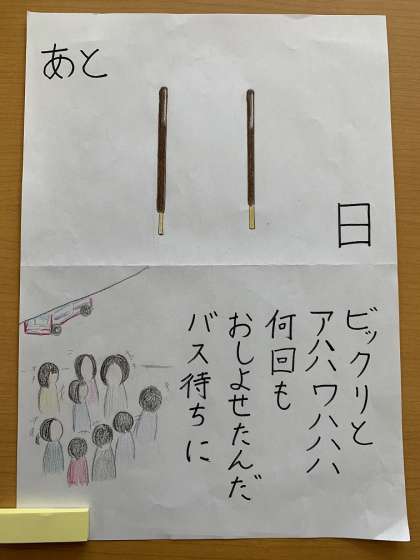 あと
11
日
ビックリと
アハハワハハハ
何回も
おしよせたんだ
バス待ちに